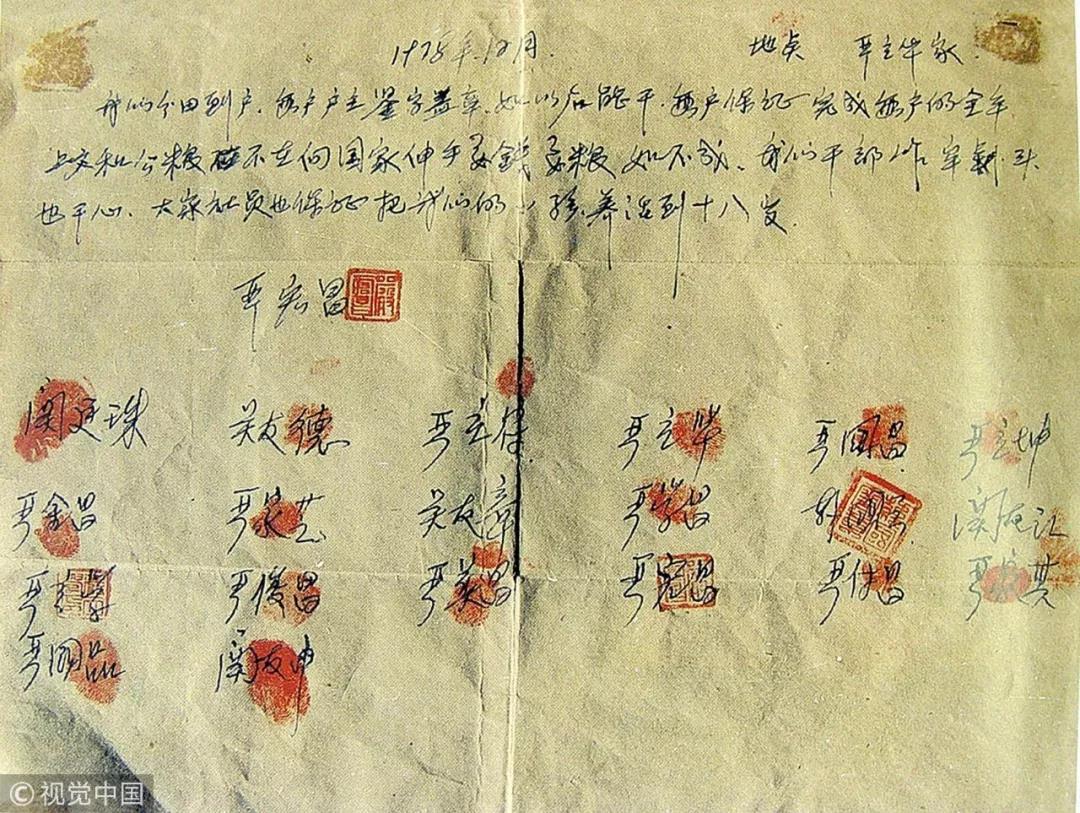 1978年12月. 地点 严立华家.
我们分田到户,每户户主签字盖章,如以后能干,每户保证完成每户的全年
上交和公粮 不在向国家伸手要钱要粮 如不成,我们干部作牢剎头
也干心,大家社员也保证把我们的小孩养活到十八岁.
严宏昌
关廷珠 关友德 严立符 严立华 严国昌 严立坤
严金昌 严家芝 关友章 严学昌 韩国云 关友江
严立学 严俊昌 严美昌 严宏昌 严付昌 严家其
严国品 关友申
©视觉中国